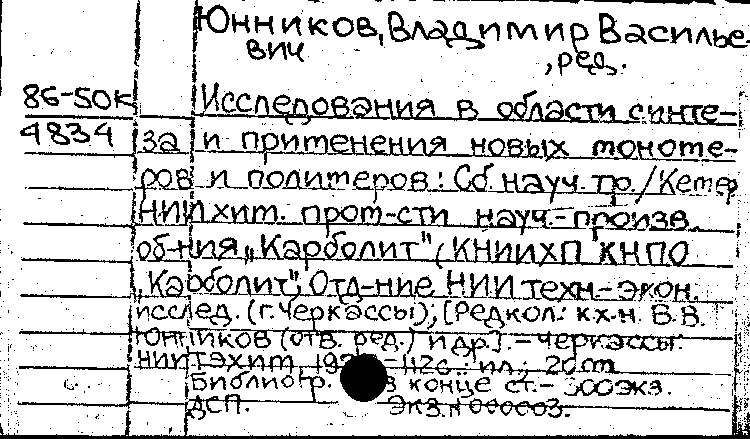 Юнников, Владимир Василье-
вич
, ред.
86-50К Исследования в области синте-
4834 за и применения новых мономе-
ров и полимеров: Сб. науч. тр./Кемер.
НИИ хим. пром-сти науч.-произв.
об-ния „Карболит" (КНИИХП КНПО
„Карболит", Отд-ние НИИ техн.-экон.
исслед. (г. Черкассы); [Редкол.: к.х.н. В.В.
Юнников (отв. ред.) и др.].-Черкассы:
НИИТЭХИМ, 112с.: ил.; 20 см
Библиогр. в конце ст.- 300экз.
ДСП. Экз. N 000003.